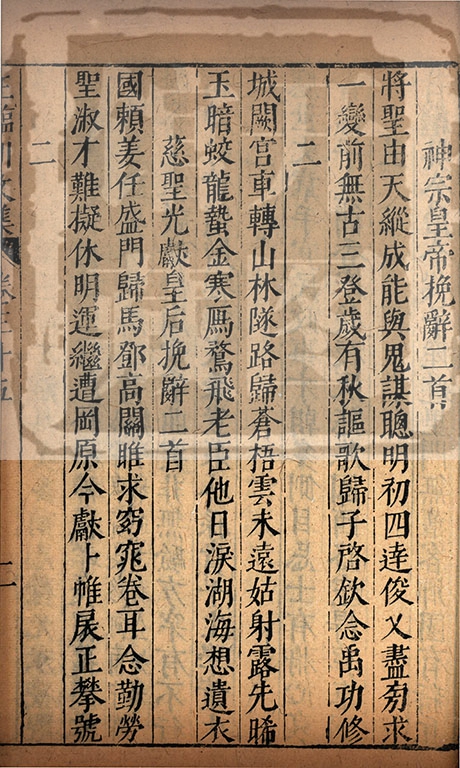 神宗皇帝挽辭二首
將聖由天縱成能與鬼謀聰明初四達俊乂盡旁求
一變前無古三登歲有秋謳歌歸子啓欽念禹功修
二
城闕宮車轉山林隧路歸蒼梧雲未遠姑射露先晞
玉暗蛟龍蟄金寒鴈鶩飛老臣他日淚湖海想遺衣
慈聖光獻皇后挽辭二首
國賴姜任盛門歸馬鄧高關雎求窈窕卷耳念勤勞
聖淑才難擬休明運繼遭岡原今獻卜帷扆正攀號
二
王臨川文集 卷三十五 二